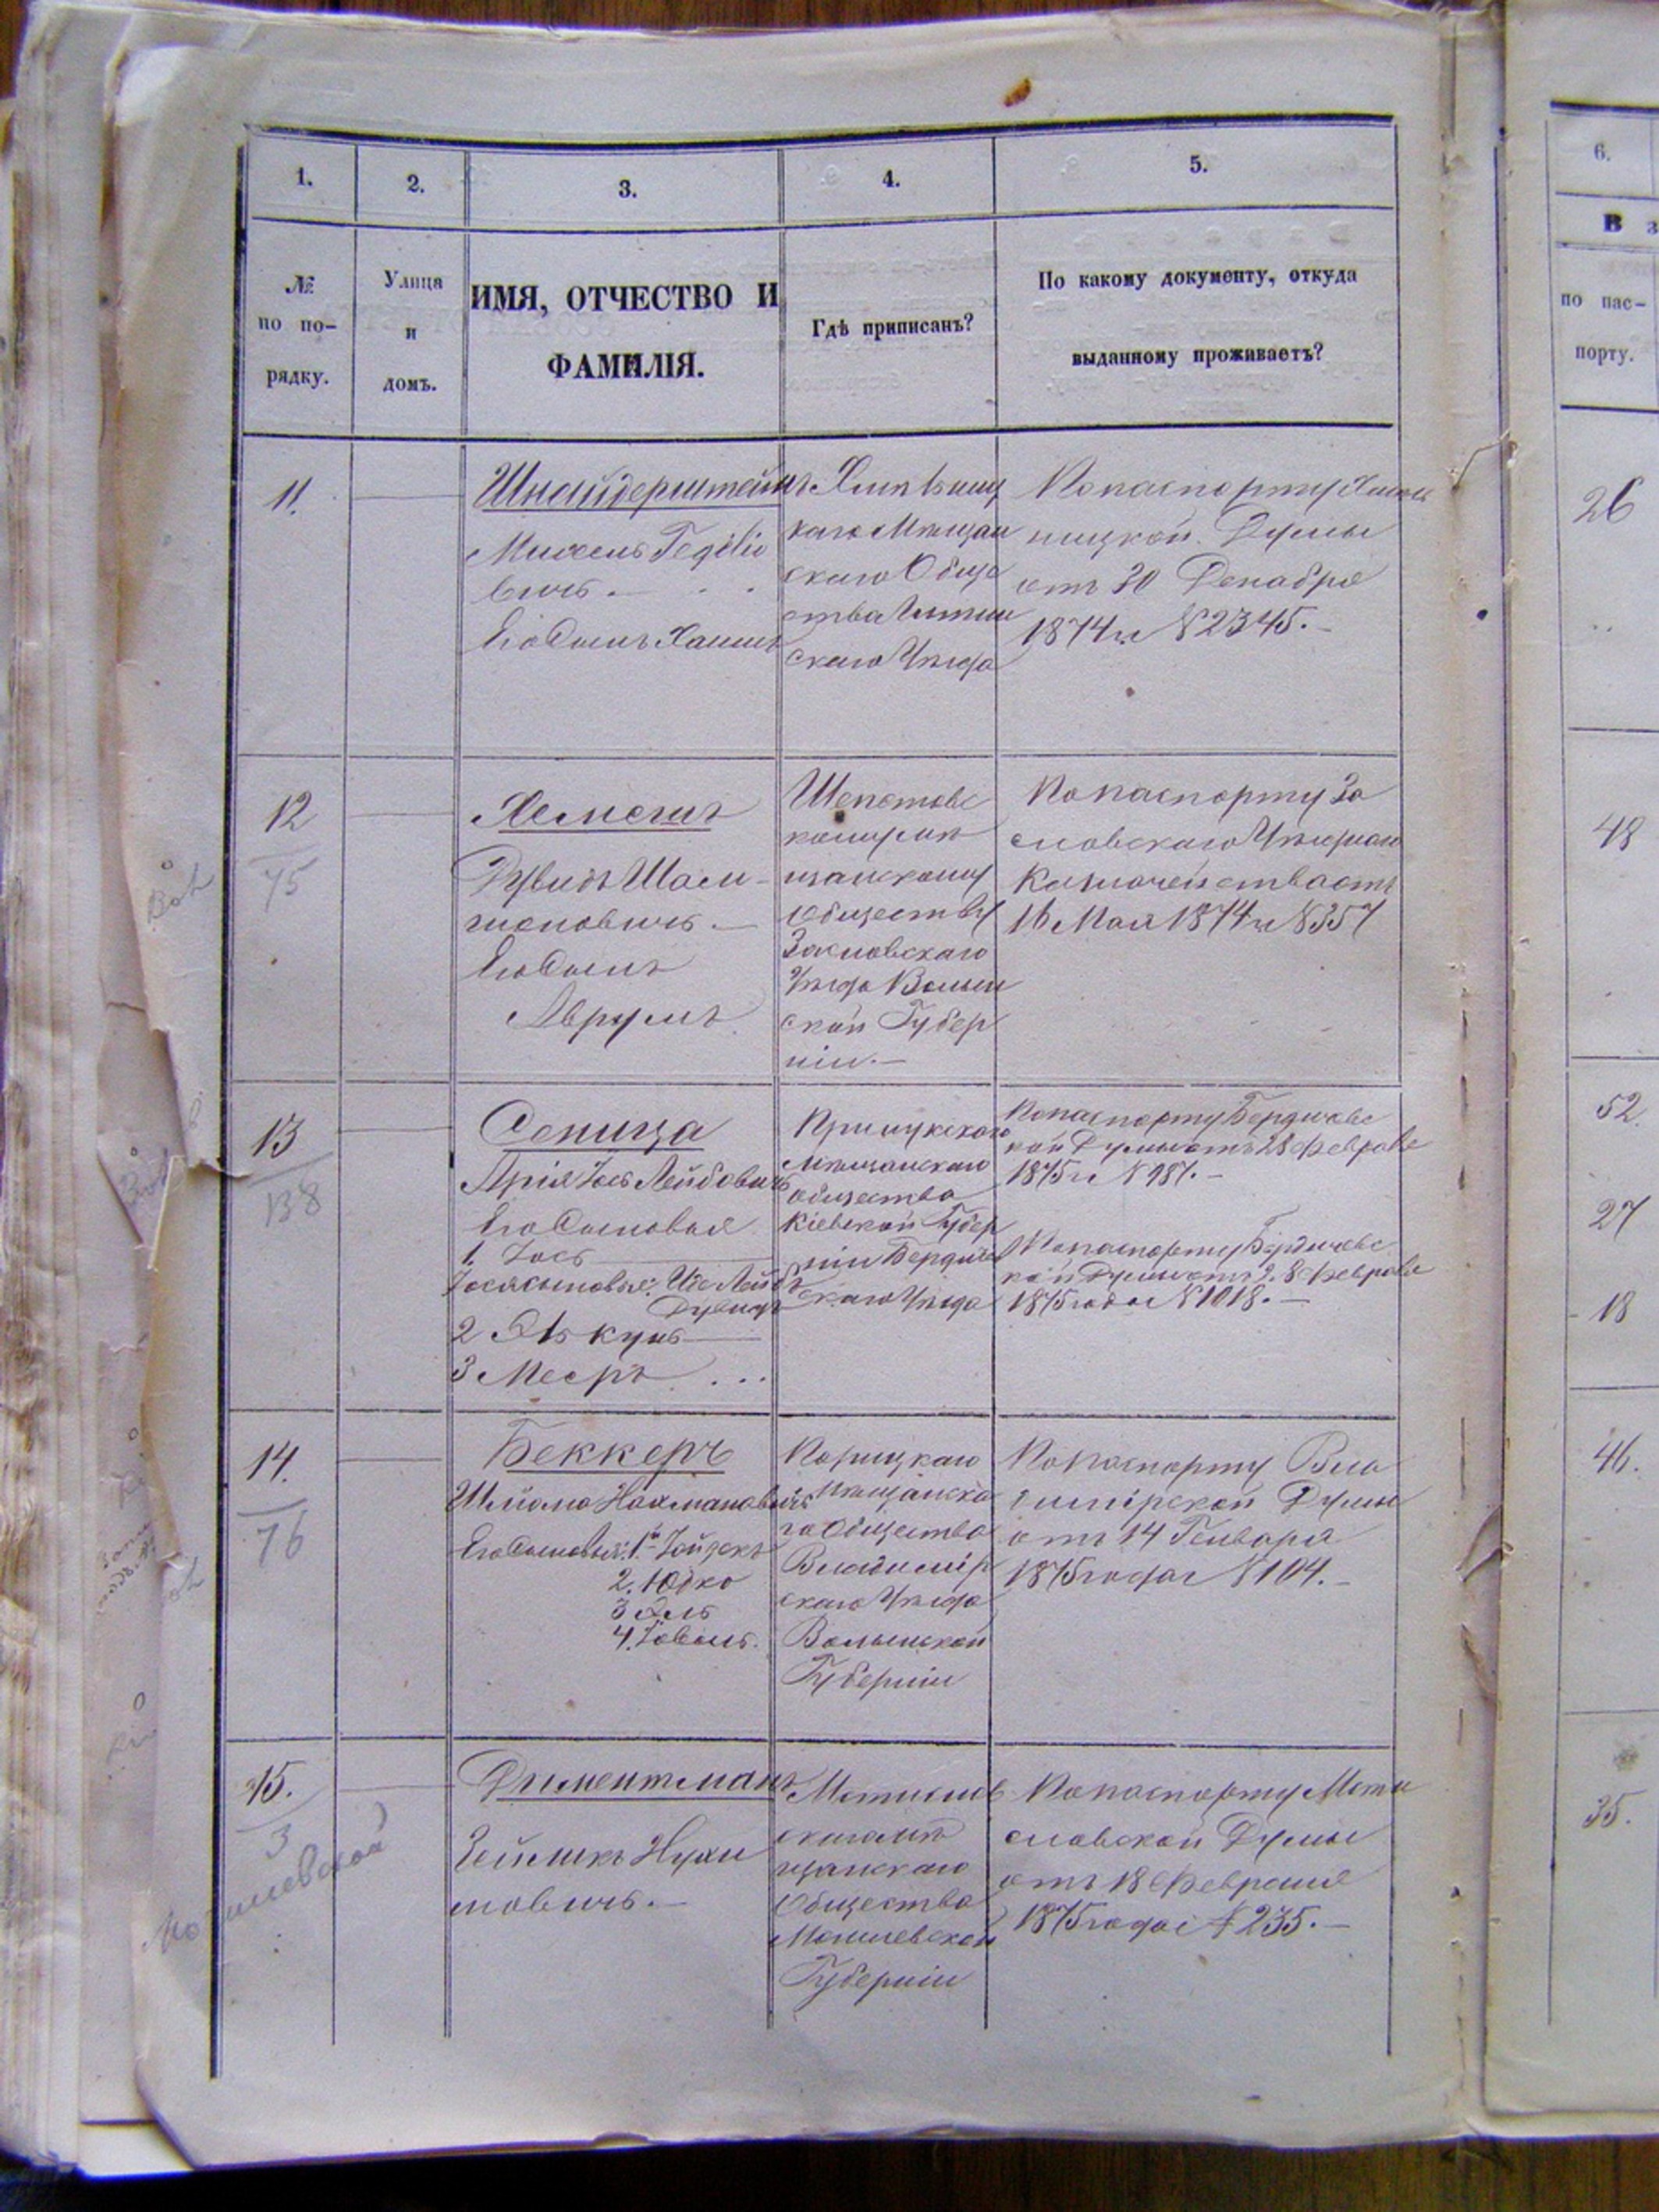 1.
2.
3.
4.
5.
№
по по-
рядку.
Улица
и
домъ.
ИМЯ, ОТЧЕСТВО И
ФАМИЛІЯ.
Гдѣ приписанъ?
По какому документу, откуда
выданному проживаетъ?
11.
Шнайдерштейнъ
Михель
вичъ.
Его Сынъ Хаимъ
каго Мѣщан
скаго Обще
ства
скаго Уѣзда
По паспорту
ницкой Думы
отъ 30 Декабря
1874 г. № 2345.
12
75
Дувидъ Шам-
шоновичъ.
Его Сынъ
Аврумъ
Шепетовс
кому мѣ
щанскому
обществу
Заславскаго
Уѣзда Волын
ской Губер
ніи.
По паспорту За
славскаго Уѣзднаго
Казначейства отъ
16 Мая 1874 г. № 357
13
138
Сепица
Арія Іось Лейбовичъ
Его Сыновья
1. Іось
Дувидъ
2
3 Мееръ
Мѣщанскаго
общества
Кіевской Губер
ніи Бердичев
скаго Уѣзда
По паспорту Бердичевс
кой Думы отъ 28 Февраля
1875 г. № 987.
По паспорту Бердичевс
кой Думы отъ 28 Февраля
1875 года № 1018.
14.
76
Беккеръ
Шлiома Нахмановичъ
Его Сыновья: 1й
2. Юдко
3
4.
Порицкаго
мѣщанска
го Общества
Владимір
скаго Уѣзда
Волынской
Губерніи
По паспорту Вла
димірской Думы
отъ 14 Генваря
1875 года № 104.
15.
3
Могилевской
Диментманъ
Нухи
мовичъ.
Мстислав
скаго мѣ
щанскаго
Общества
Могилевской
Губерніи
По паспорту Мсти
славской Думы
отъ 18 Февраля
1875 года № 235.
6.
В з
по пас-
порту.
26
48
52
27
18
46.
35.